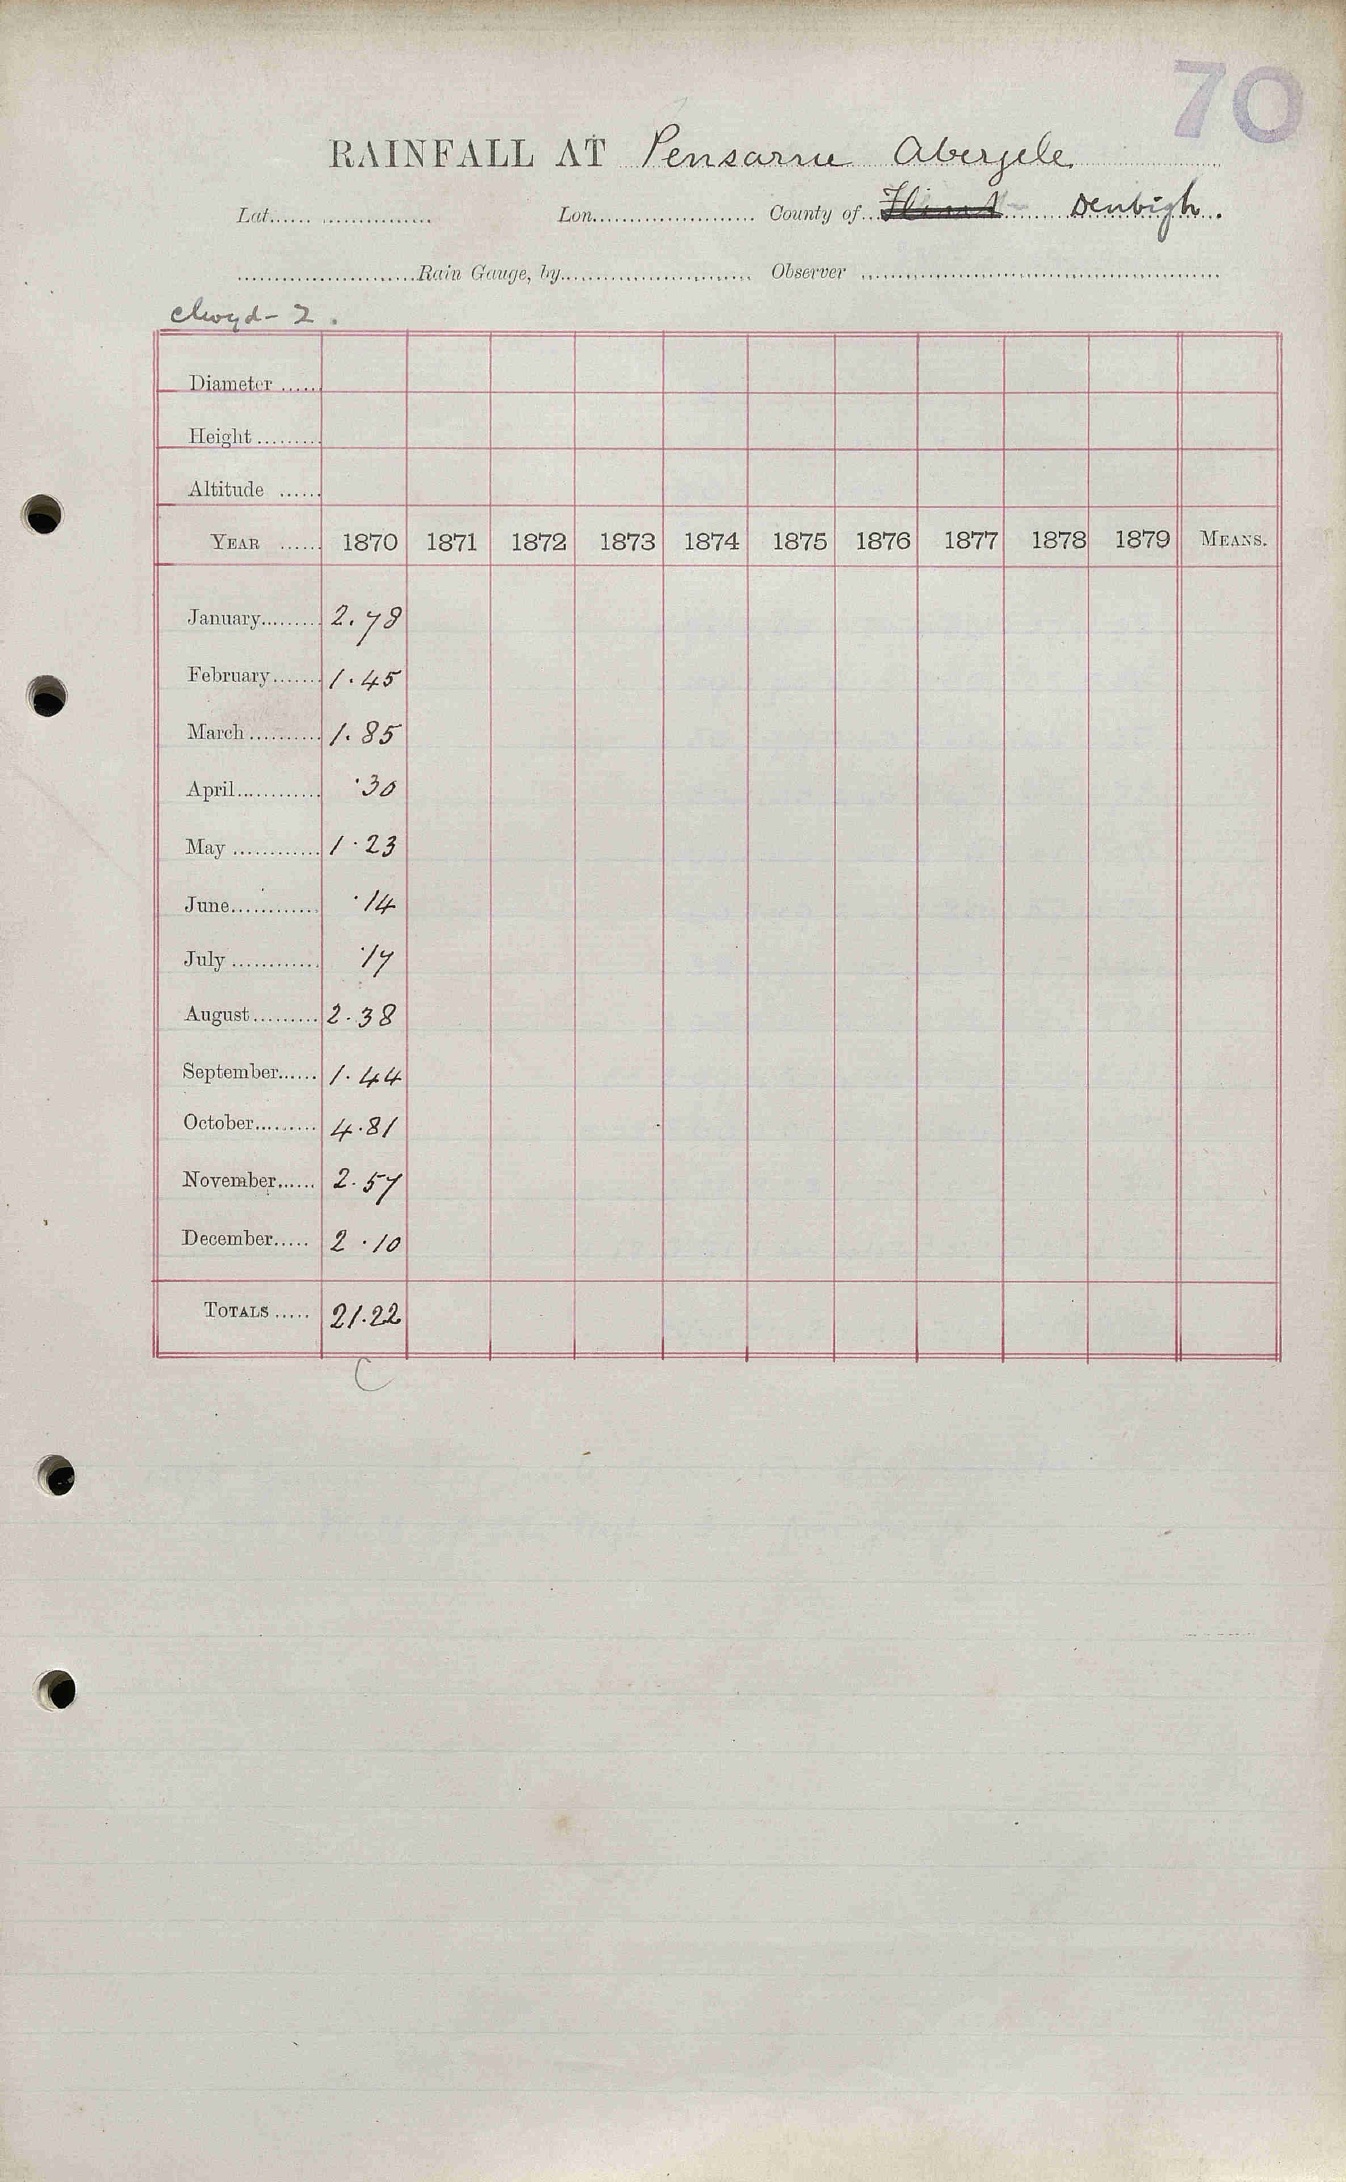 70
RAINFALL AT Pensarne Abergele
Lat. Lon. County of Flint Denbigh.
Rain Gauge, by Observer
Clwyd - 2.
Diameter
Height
Altitude
YEAR 1870 1871 1872 1873 1874 1875 1876 1877 1878 1879 MEANS.
January 2.78
February 1.45
March 1.85
April .30
May 1.23
June .14
July .17
August 2.38
September 1.44
October 4.81
November 2.57
December 2.10
TOTALS 21.22
C